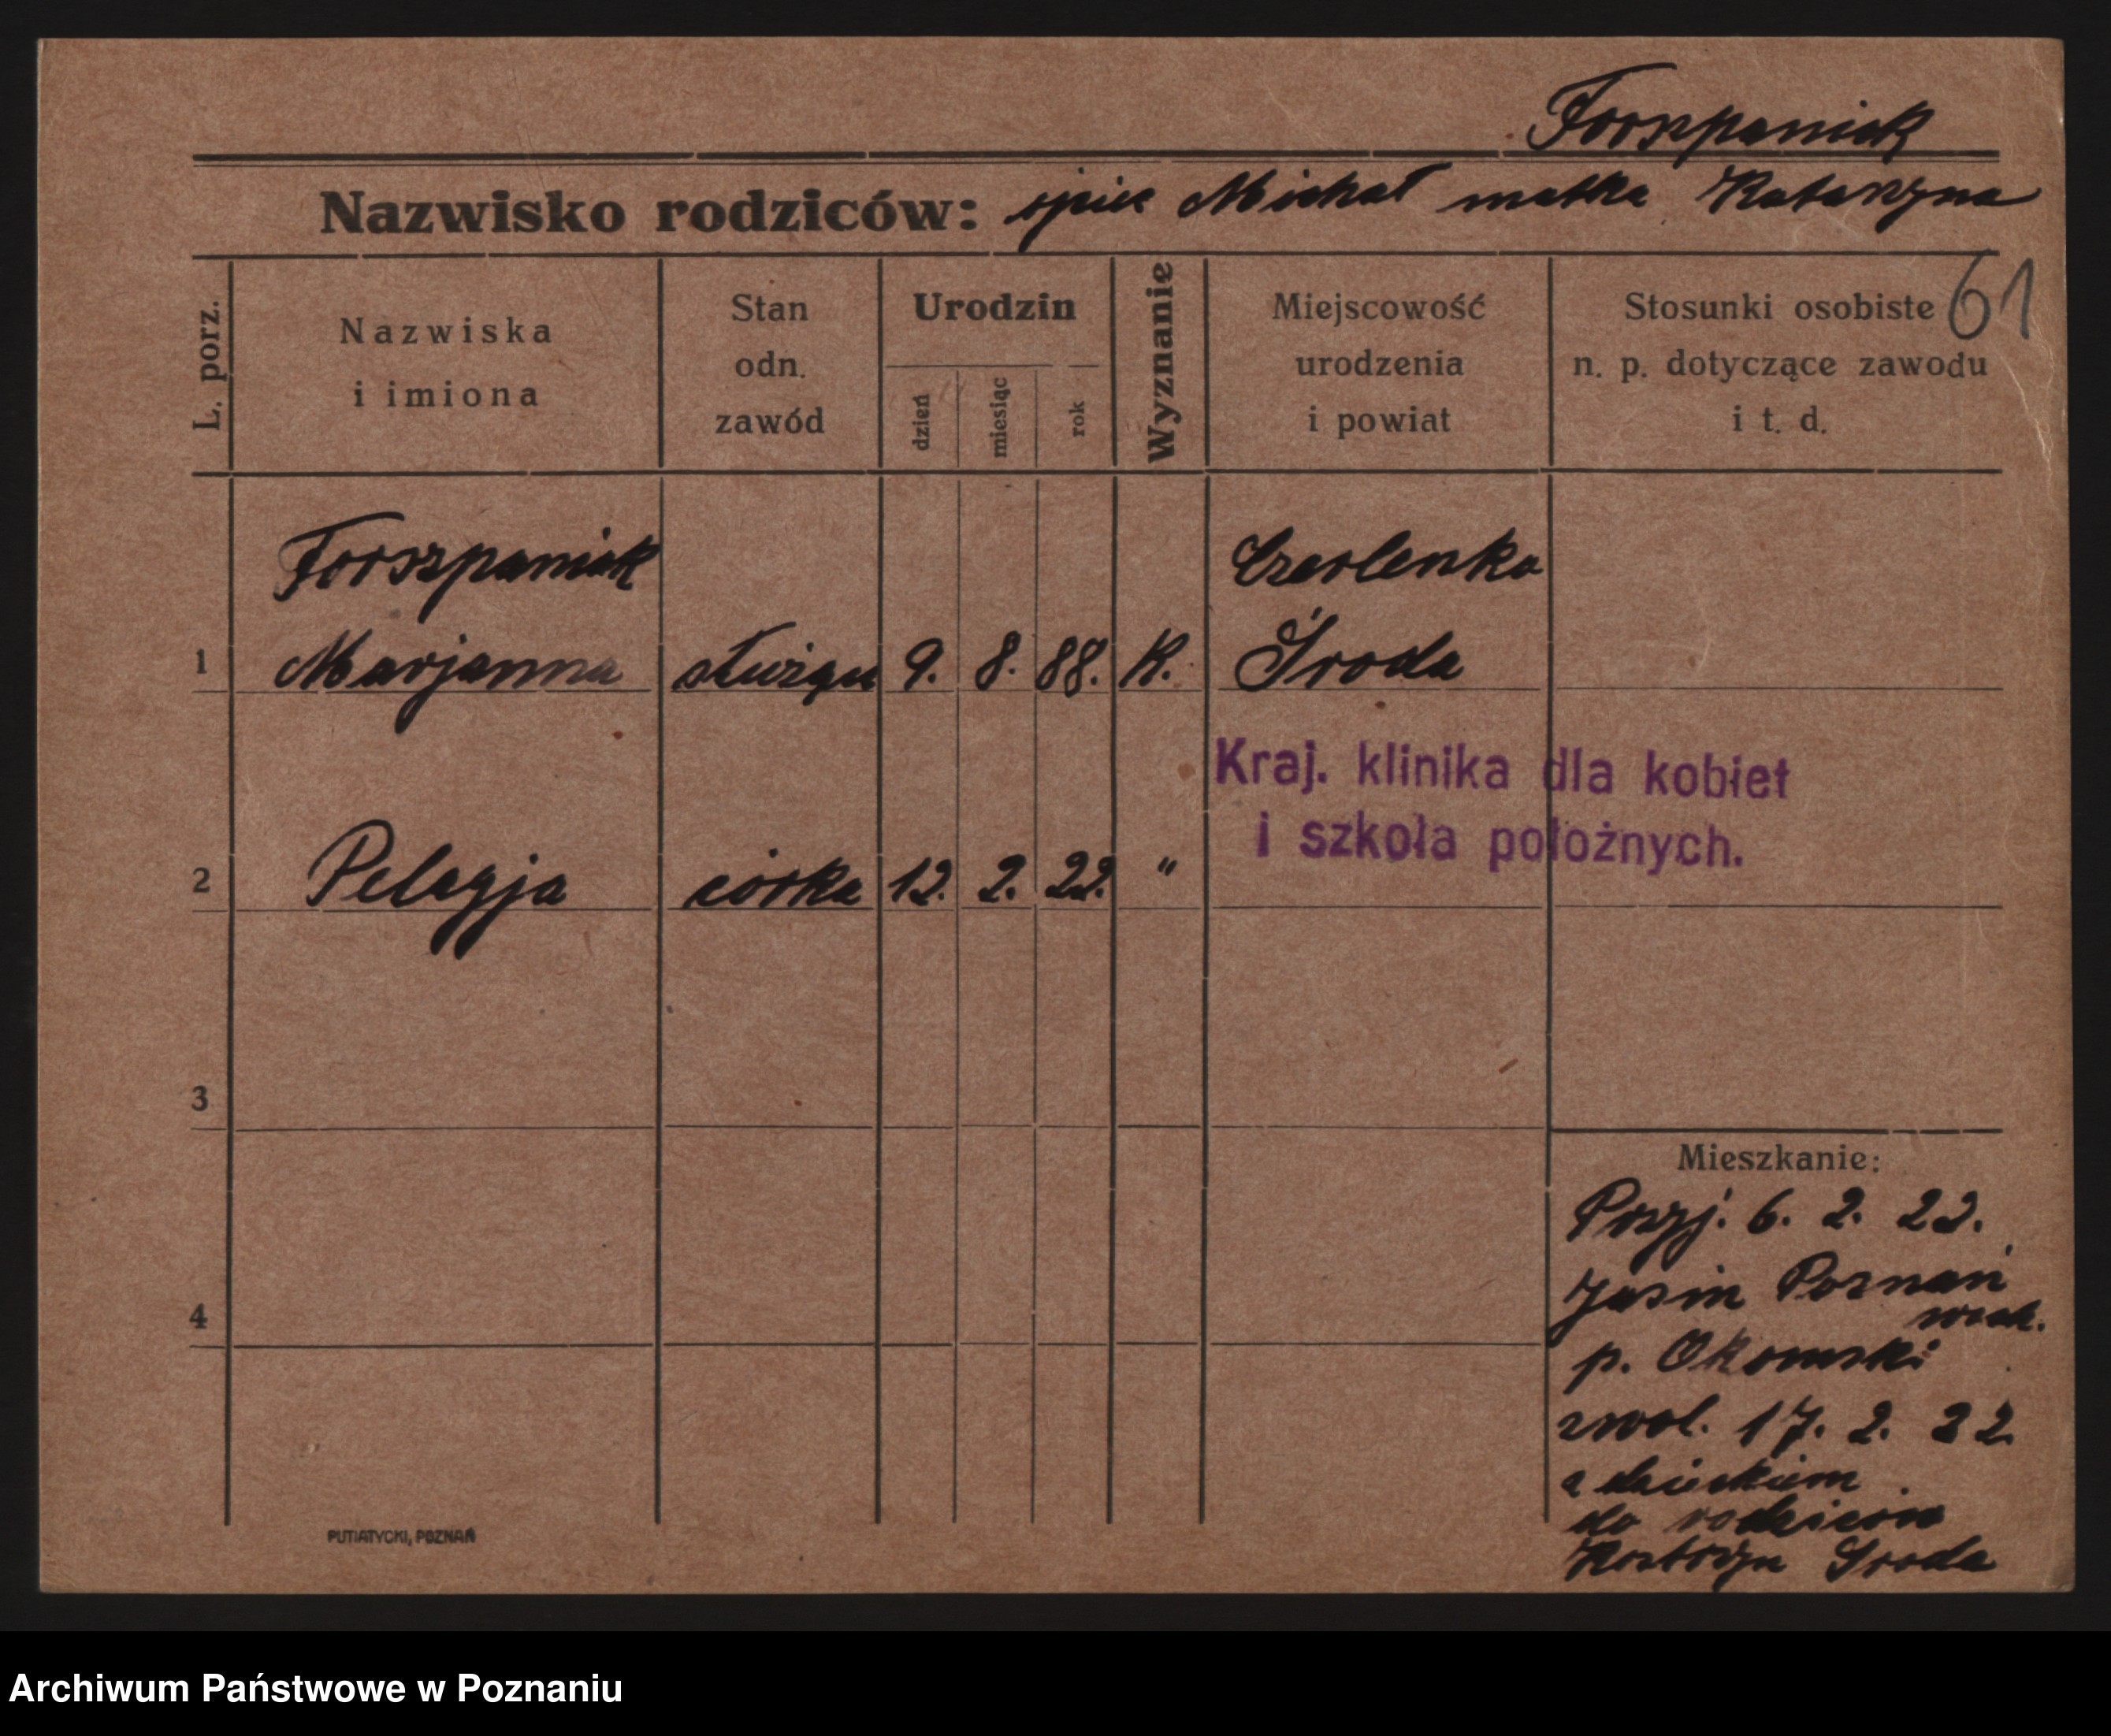 Forszpaniak
Nazwisko rodziców: ojciec Michał matka Katarzyna
61
L. porz.
Nazwiska
i imiona
Stan
odn.
zawód
Urodzin
dzień
miesiąc
rok
Wyznanie
Miejscowość
urodzenia
i powiat
Stosunki osobiste
n. p. dotyczące zawodu
i t. d.
Forszpaniak Czerlenko
1 Marjanna służąca 9. 8. 88. K. Środa
Kraj. klinika dla kobiet
i szkoła położnych.
2 Pelagja córka 12. 2. 22. "
3
Mieszkanie:
Przyj. 6. 2. 22.
Jasin Poznań
wsch.
4
p. Okomski
zwol. 17. 2. 22
z dzieckiem
do rodziców
Kostrzyn Środa
PUTIATYCKI, POZNAŃ
Archiwum Państwowe w Poznaniu